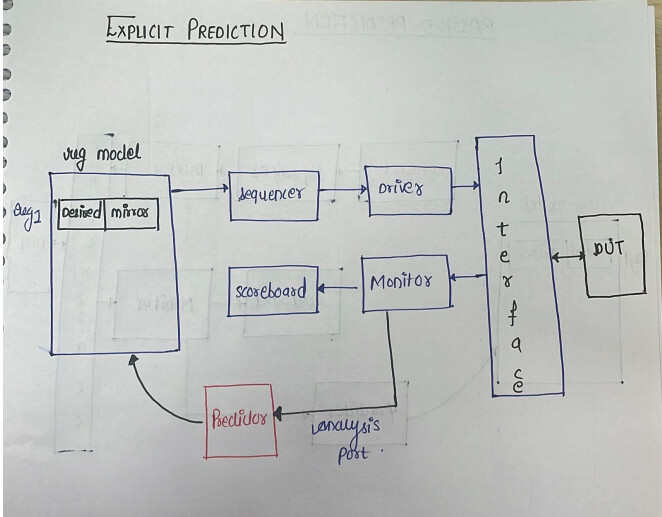 EXPLICIT PREDICTION
reg model
reg1
Desired
mirror
sequencer
Driver
Interface
DUT
scoreboard
Monitor
Predictor
analysis
port.